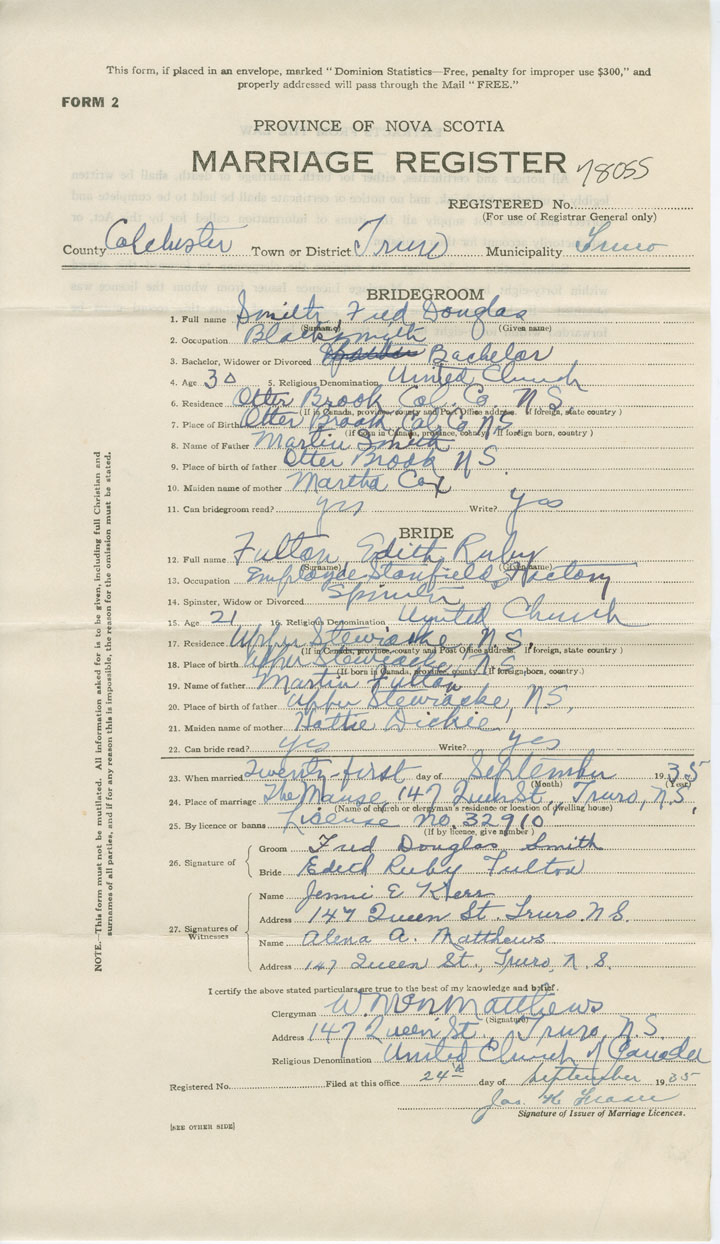 This form, if placed in an envelope, marked "Dominion Statistics—Free, penalty for improper use $300," and
properly addressed will pass through the Mail "FREE."
FORM 2
PROVINCE OF NOVA SCOTIA
MARRIAGE REGISTER 78055
REGISTERED No.
(For use of Registrar General only)
County Colchester Town or District Truro Municipality Truro
BRIDEGROOM
1. Full name Smith, Fred Douglas
(Surname) (Given name)
2. Occupation Blacksmith
3. Bachelor, Widower or Divorced Bachelor
4. Age 30 5. Religious Denomination United Church
6. Residence Otter Brook Col. Co. N.S.
(If in Canada, province, county and Post Office address. If foreign, state country)
7. Place of Birth Otter Brook Col. Co. N.S.
(If born in Canada, province, county. If foreign born, country.)
8. Name of Father Martin Smith
9. Place of birth of father Otter Brook N S
10. Maiden name of mother Martha Cox
11. Can bridegroom read? yes Write? yes
BRIDE
12. Full name Fulton Edith Ruby
(Surname) (Given name)
13. Occupation Employee Stanfield's Factory
14. Spinster, Widow or Divorced Spinster
15. Age 21 16. Religious Denomination United Church
17. Residence Upper Stewiacke, N.S.
(If in Canada, province, county and Post Office address. If foreign, state country)
18. Place of birth Upper Stewiacke, N.S.
(If born in Canada, province, county. If foreign born, country.)
19. Name of father Martin Fulton
20. Place of birth of father Upper Stewiacke, N.S,
21. Maiden name of mother Hattie Dickie
22. Can bride read? yes Write? yes
23. When married Twenty-first day of September 1935
(Month) (Year)
24. Place of marriage The Manse, 147 Queen St., Truro, N.S.
(Name of church or clergyman's residence or location of dwelling house)
25. By licence or banns License No. 32910
(If by licence, give number)
26. Signature of
Groom Fred Douglas Smith
Bride Edith Ruby Fulton
27. Signatures of Witnesses
Name Jennie E Kerr
Address 147 Queen St. Truro. N.S.
Name Alena A. Matthews
Address 147 Queen St., Truro, N.S.
I certify the above stated particulars are true to the best of my knowledge and belief.
Clergyman Matthews
(Signature)
Address 147 Queen St., Truro, N.S.
Religious Denomination United Church of Canada
Registered No. Filed at this office 24th day of September 1935
Jas.
Signature of Issuer of Marriage Licences.
[SEE OTHER SIDE]
NOTE.—This form must not be mutilated. All information asked for is to be given, including full Christian and
surnames of all parties, and if for any reason this is impossible, the reason for the omission must be stated.